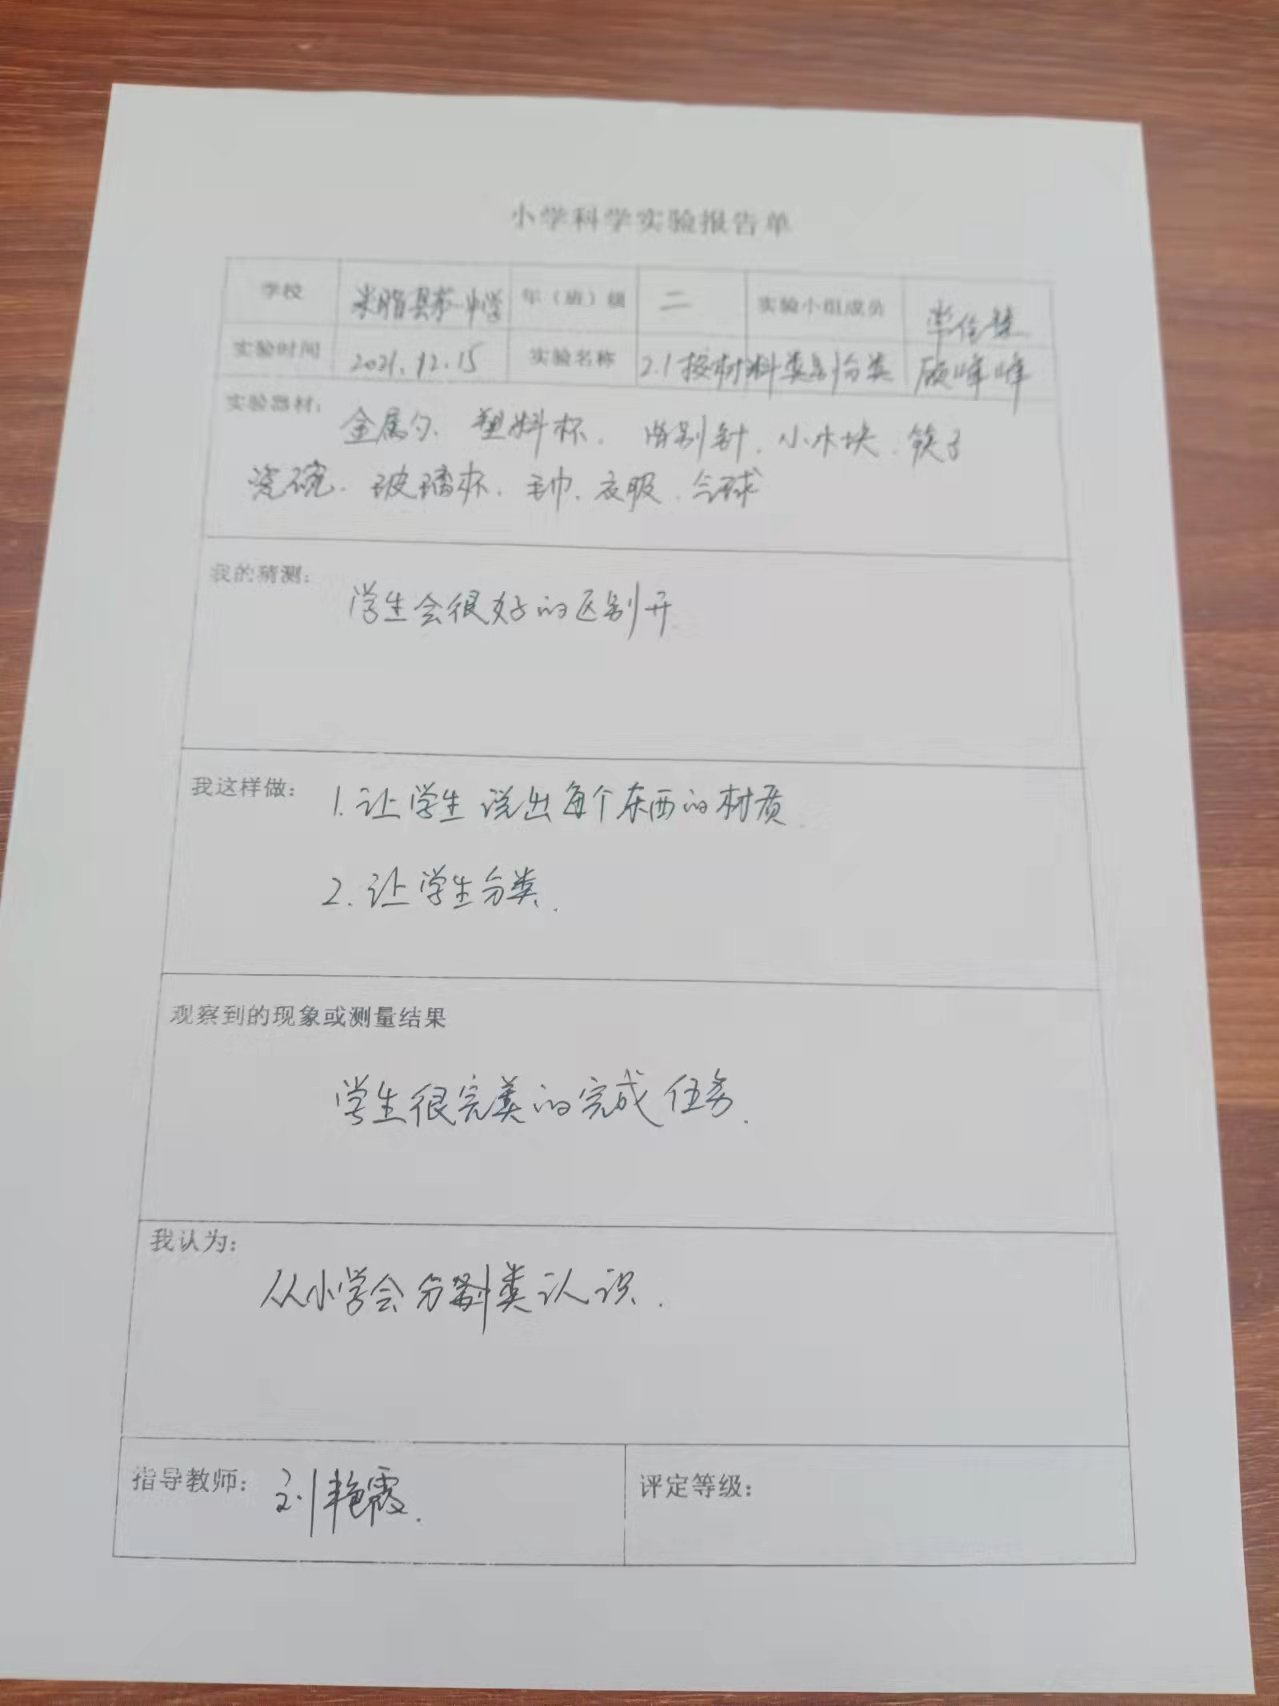 小学科学实验报告单
学校 米脂县第一中学 年（班）级 二 实验小组成员
实验时间 2021.12.15 实验名称 2.1按材料类别分类 峰峰
实验器材： 金属勺、塑料杯、别针、小木块、筷子
瓷碗、玻璃杯、毛巾、衣服、气球
我的猜测： 学生会很好的区别开
我这样做： 1. 让学生说出每个东西的材质
2. 让学生分类.
观察到的现象或测量结果
学生很完美的完成任务.
我认为：
从小学会分类认识.
指导教师： 刘艳霞. 评定等级：